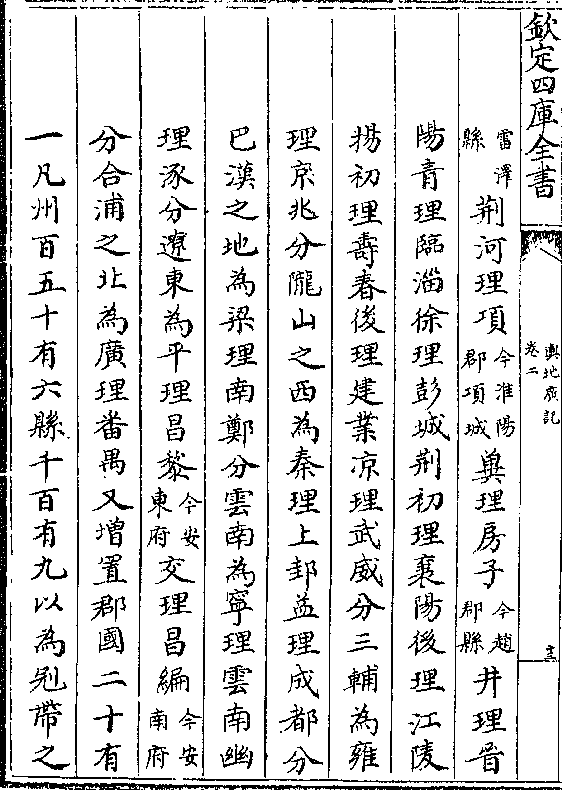 欽定四庫全書
輿地廣記
卷二
十三
雷澤縣荆河理項今淮陽郡項城兾理房子今趙郡縣并理晋
陽青理臨淄徐理彭城荆初理襄陽後理江陵
揚初理壽春後理建業凉理武威分三輔為雍
理京兆分隴山之西為秦理上邽益理成都分
巴漢之地為梁理南鄭分雲南為寧理雲南幽
理涿分遼東為平理昌黎今安東府交理昌編今安南府
分合浦之北為廣理番禺又増置郡國二十有
一凡州百五十有六縣千百有九以為冠帶之